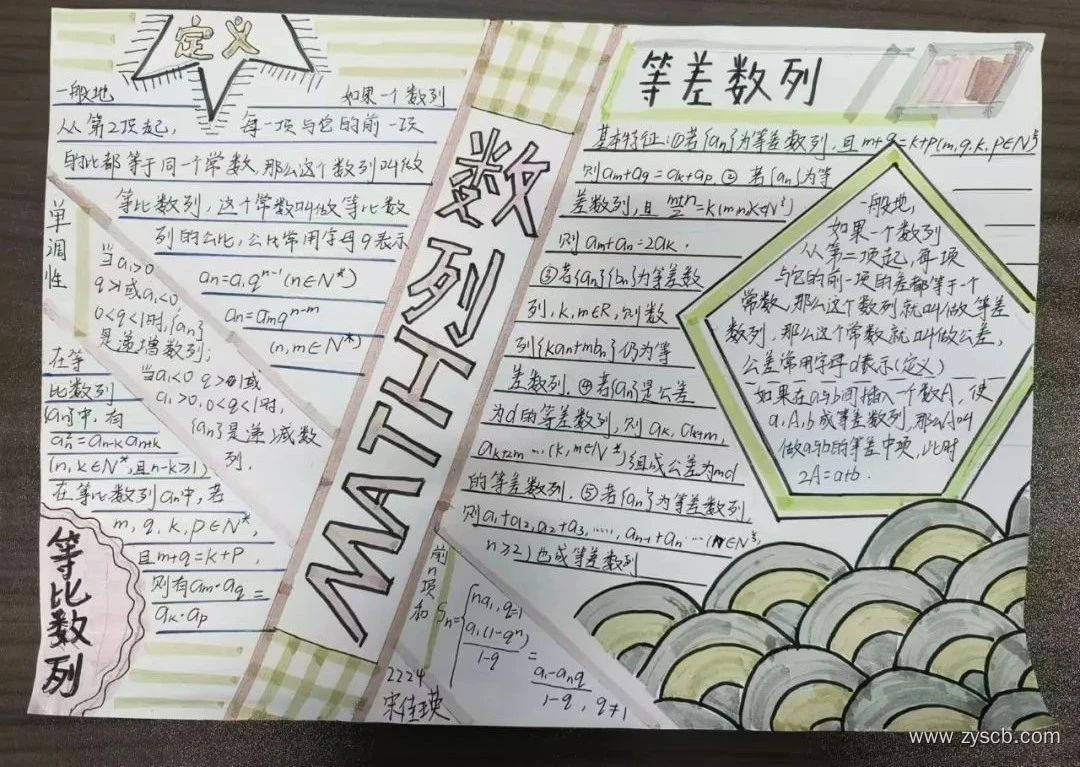 定义
一般地 如果一个数列
从第2项起, 每一项与它的前一项
的比都等于同一个常数,那么这个数列叫做
等比数列,这个常数叫做等比数
列的公比,公比常用字母q表示
an=a₁qⁿ⁻¹(n∈N*)
an=amqⁿ⁻ᵐ
(n,m∈N*)
单调性
当a₁>0
q>1或a₁<0
0<q<1时,{an}
是递增数列;
当a₁<0 q>1或
a₁>0,0<q<1时,
{an}是递减数
列.
在等
比数列
{an}中,有
an²=an-k an+k
(n,k∈N*,且n-k≥1)
在等比数列an中,若
m,q,k,p∈N*,
且m+q=k+p,
则有am·aq=
ak·ap
等比数列
数列MATH
前n项和
Sn={na₁,q=1
a₁(1-qⁿ)/1-q = a₁-anq/1-q,q≠1
2224
等差数列
基本特征:①若{an}为等差数列,且m+q=k+p(m,q,k,p∈N*)
则am+aq=ak+ap.②若{an}为等
差数列,且m+n/2=k(m,n,k∈N*)
则am+an=2ak.
③若{an}{bn}为等差数
列,k,m∈R,则数
列{kan+mbn}仍为等
差数列.④若{an}是公差
为d的等差数列,则ak,ak+m,
ak+2m…(k,m∈N*)组成公差为md
的等差数列.⑤若{an}为等差数列,
则a₁+a₂,a₂+a₃,……,an-1+an…(n∈N*,
n≥2)也成等差数列
一般地,
如果一个数列
从第二项起,每一项
与它的前一项的差都等于一个
常数,那么这个数列就叫做等差
数列,那么这个常数就叫做公差,
公差常用字母d表示(定义)
如果在a与b间插入一个数A,使
a,A,b成等差数列,那么A叫
做a与b的等差中项,此时
2A=a+b.
www.zyscb.com